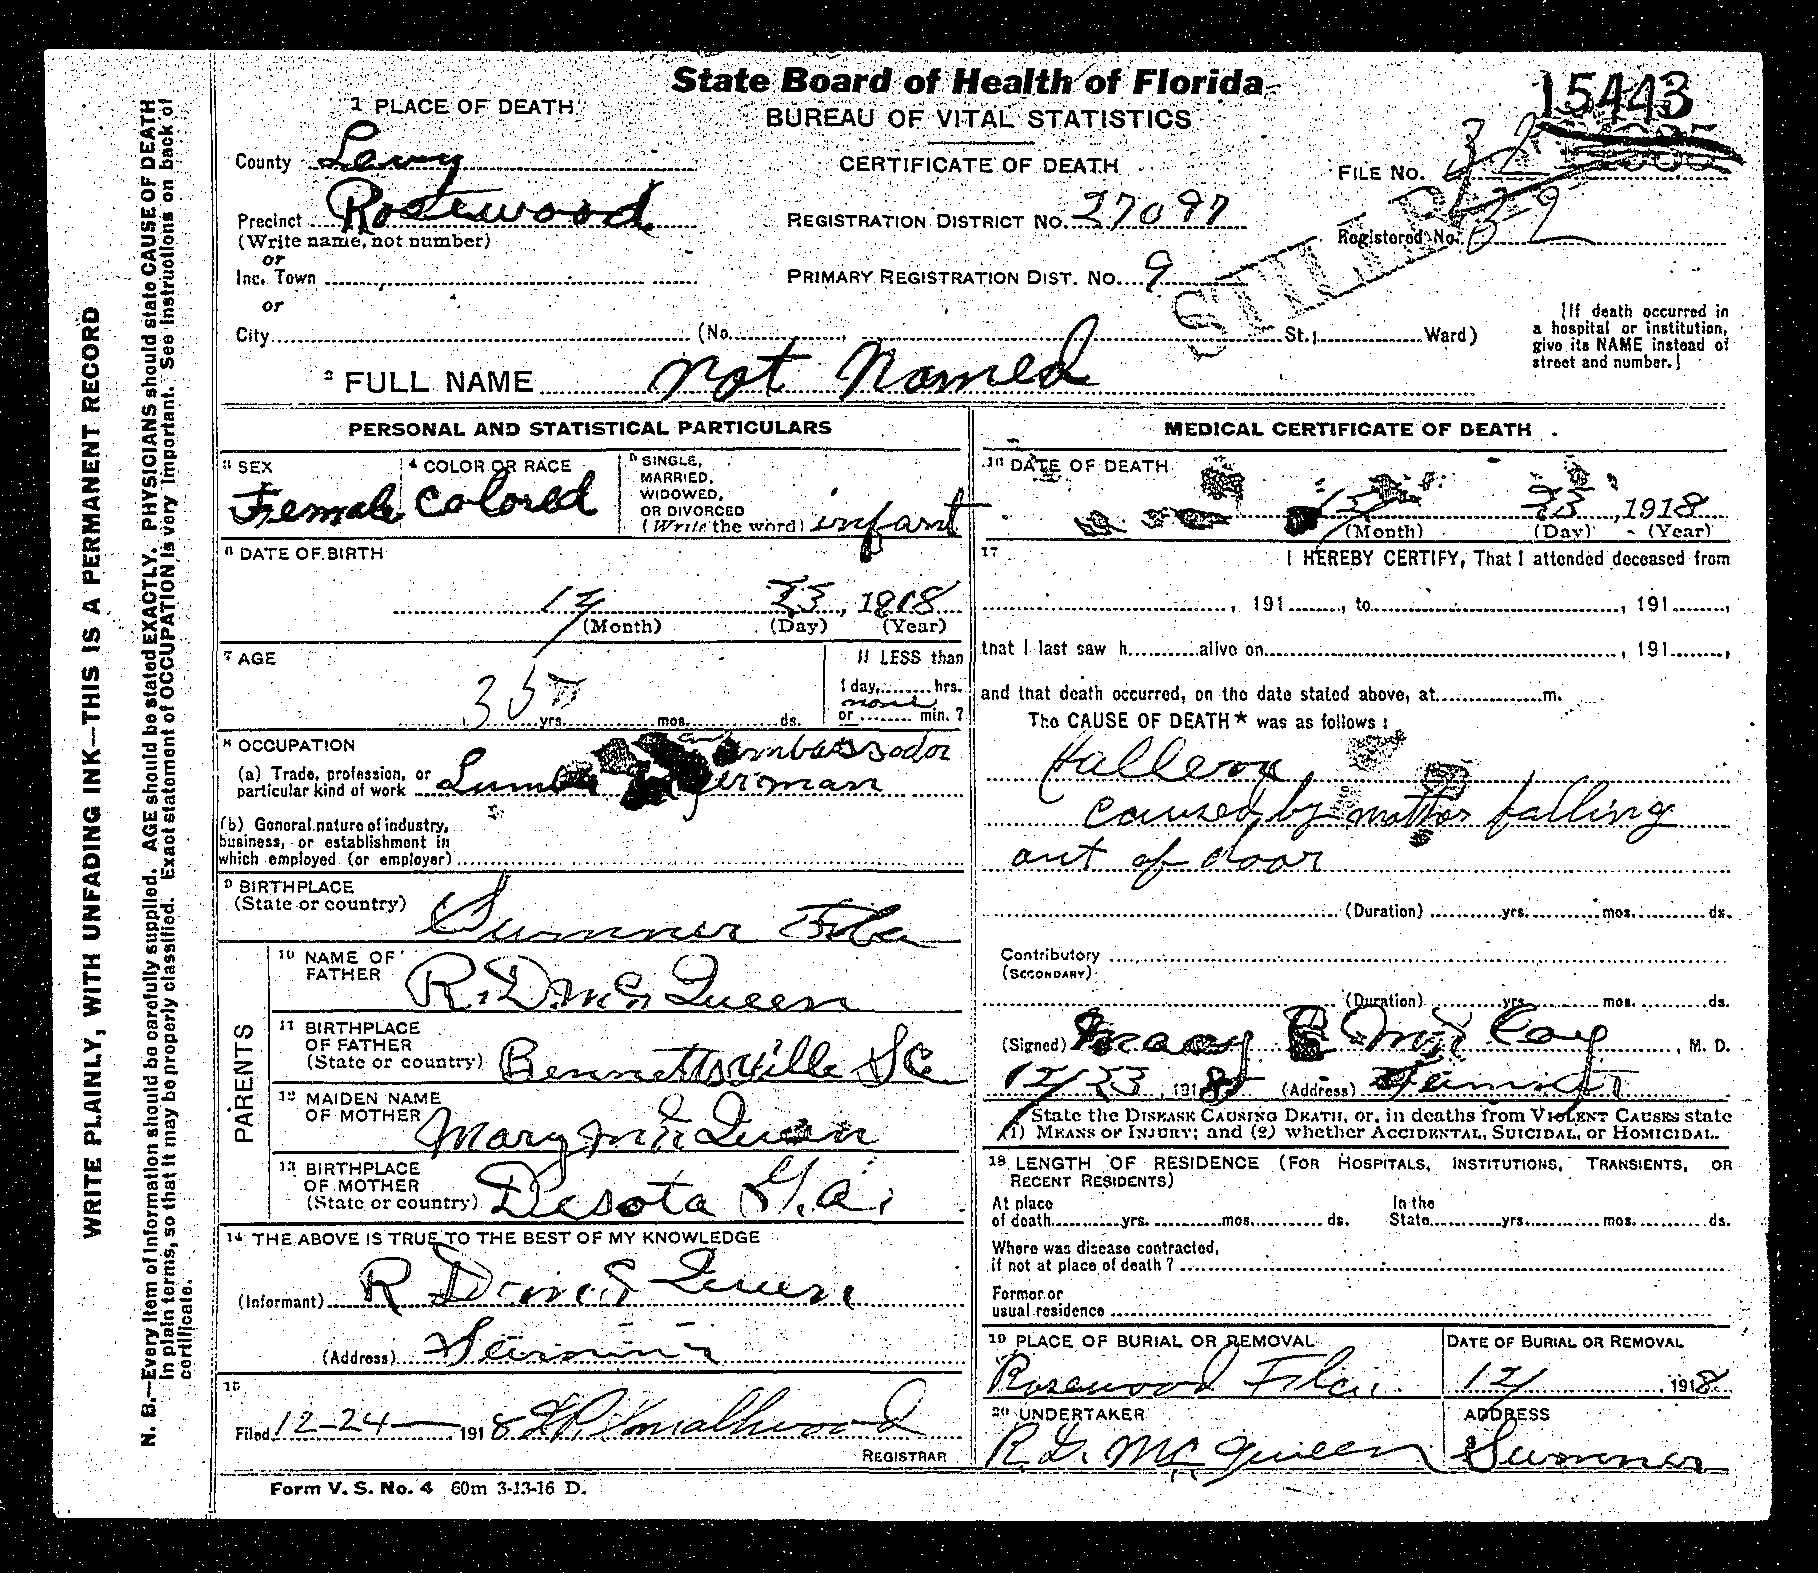 State Board of Health of Florida
BUREAU OF VITAL STATISTICS
CERTIFICATE OF DEATH
15443
1 PLACE OF DEATH
County Levy
Precinct Rosewood
(Write name, not number)
or
Inc. Town
or
City (No. St.; Ward)
REGISTRATION DISTRICT No. 27097
PRIMARY REGISTRATION DIST. No. 9
FILE No.
Registered No. 32
[If death occurred in
a hospital or institution,
give its NAME instead of
street and number.]
2 FULL NAME not Named
PERSONAL AND STATISTICAL PARTICULARS
3 SEX
Female
4 COLOR OR RACE
Colored
5 SINGLE,
MARRIED,
WIDOWED,
OR DIVORCED
(Write the word) infant
6 DATE OF BIRTH
12 23, 1918
(Month) (Day) (Year)
7 AGE
yrs. mos. ds.
If LESS than
1 day, hrs.
none
or min.?
8 OCCUPATION
(a) Trade, profession, or
particular kind of work
(b) General nature of industry,
business, or establishment in
which employed (or employer)
9 BIRTHPLACE
(State or country)
Sumner Fla
PARENTS
10 NAME OF
FATHER R. D. Mc Queen
11 BIRTHPLACE
OF FATHER
(State or country) Bennettsville SC
12 MAIDEN NAME
OF MOTHER Mary Mc Queen
13 BIRTHPLACE
OF MOTHER
(State or country) Desota Ga.
14 THE ABOVE IS TRUE TO THE BEST OF MY KNOWLEDGE
(Informant) R D Mc Queen
(Address) Sumner
15
Filed 12-24 1918
REGISTRAR
Form V. S. No. 4 60m 3-13-16 D.
MEDICAL CERTIFICATE OF DEATH
16 DATE OF DEATH
12 23, 1918
(Month) (Day) (Year)
17
I HEREBY CERTIFY, That I attended deceased from
, 191 , to , 191 ,
that I last saw h alive on , 191 ,
and that death occurred, on the date stated above, at m.
The CAUSE OF DEATH* was as follows:
caused by mother falling
out of door
(Duration) yrs. mos. ds.
Contributory
(SECONDARY)
(Duration) yrs. mos. ds.
(Signed) , M. D.
12/23, 1918 (Address) Sumner
State the DISEASE CAUSING DEATH, or, in deaths from VIOLENT CAUSES state
(1) MEANS OF INJURY; and (2) whether ACCIDENTAL, SUICIDAL, or HOMICIDAL.
18 LENGTH OF RESIDENCE (FOR HOSPITALS, INSTITUTIONS, TRANSIENTS, OR
RECENT RESIDENTS)
At place In the
of death yrs. mos. ds. State yrs. mos. ds.
Where was disease contracted,
if not at place of death?
Former or
usual residence
19 PLACE OF BURIAL OR REMOVAL
Rosewood Fla.
DATE OF BURIAL OR REMOVAL
12/ , 1918
20 UNDERTAKER
R. D. McQueen
ADDRESS
Sumner
WRITE PLAINLY, WITH UNFADING INK—THIS IS A PERMANENT RECORD
N. B.—Every item of information should be carefully supplied. AGE should be stated EXACTLY. PHYSICIANS should state CAUSE OF DEATH
in plain terms, so that it may be properly classified. Exact statement of OCCUPATION is very important. See instructions on back of
certificate.